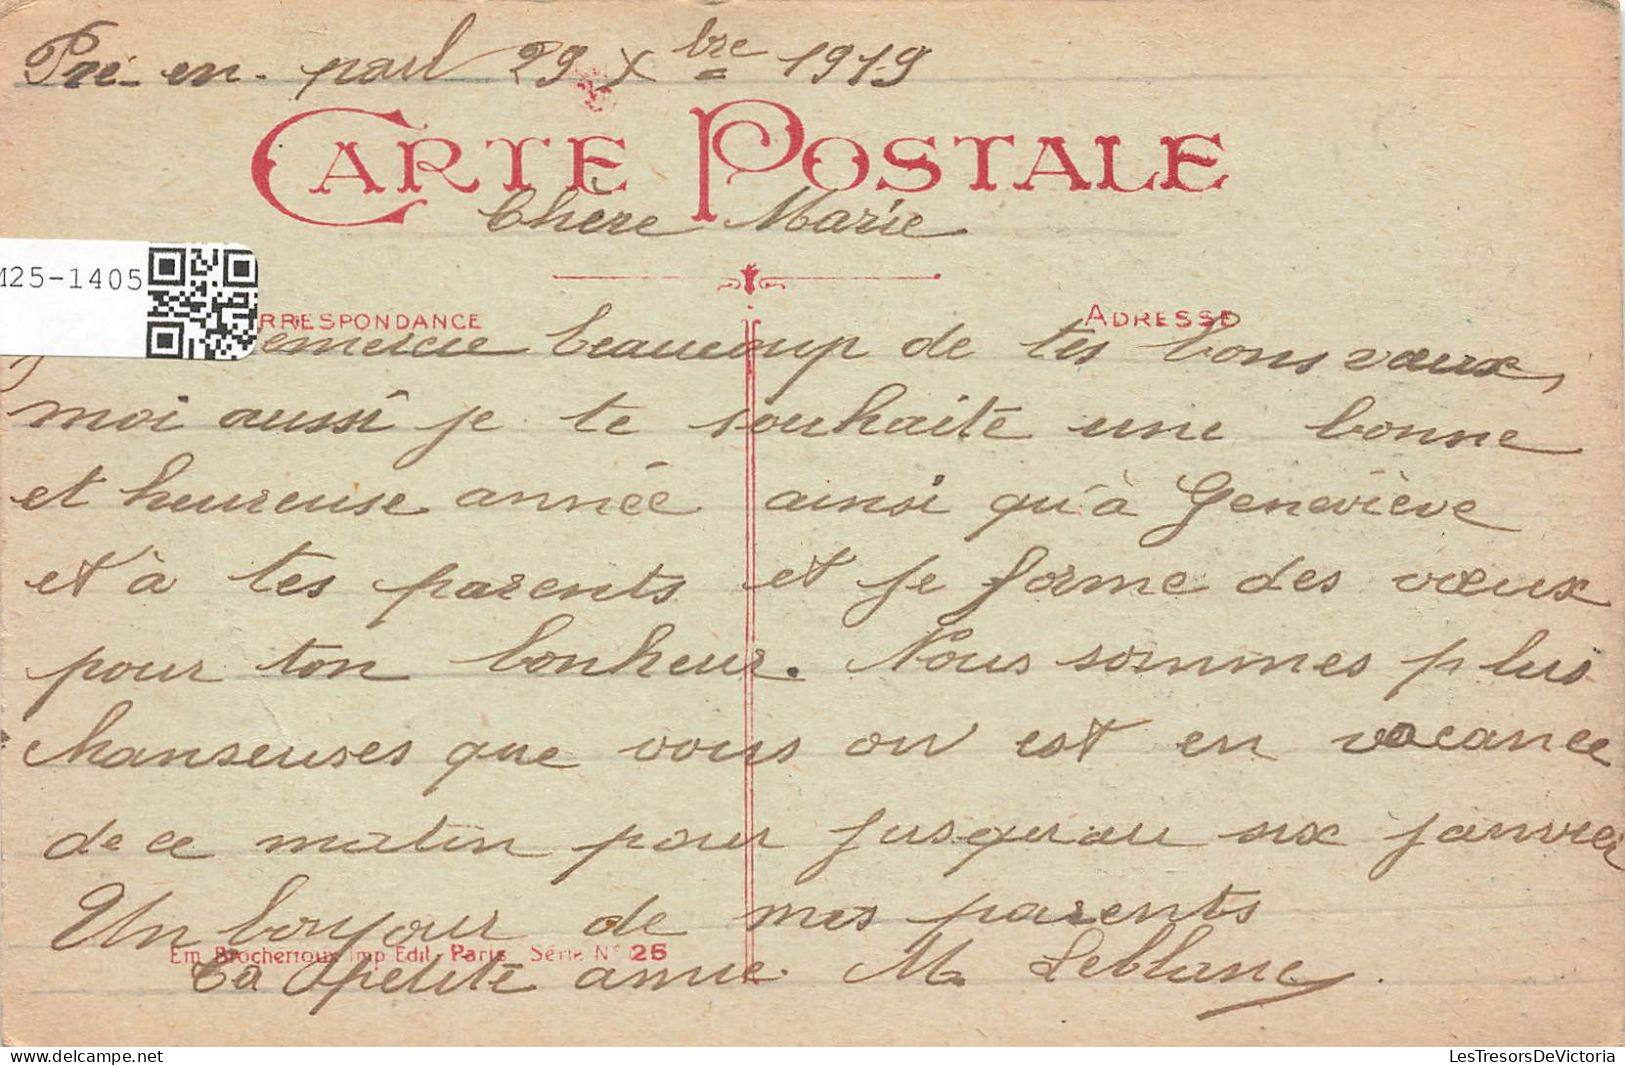 Pré-en-pail 29 Xbre 1919
CARTE POSTALE
Chère Marie
M25-1405
RRESPONDANCE
ADRESSE
emercie beaucoup de tes bons vœux,
moi aussi je te souhaite une bonne
et heureuse année ainsi qu'à Geneviève
et à tes parents et je forme des vœux
pour ton bonheur. Nous sommes plus
chanseuses que vous on est en vacance
de ce matin pour jusqu'au six janvier
Un bonjour de mes parents
Em Brocherioux Imp Edit-Paris Série N° 25
Ta petite amie M. Leblanc.
LesTresorsDeVictoria